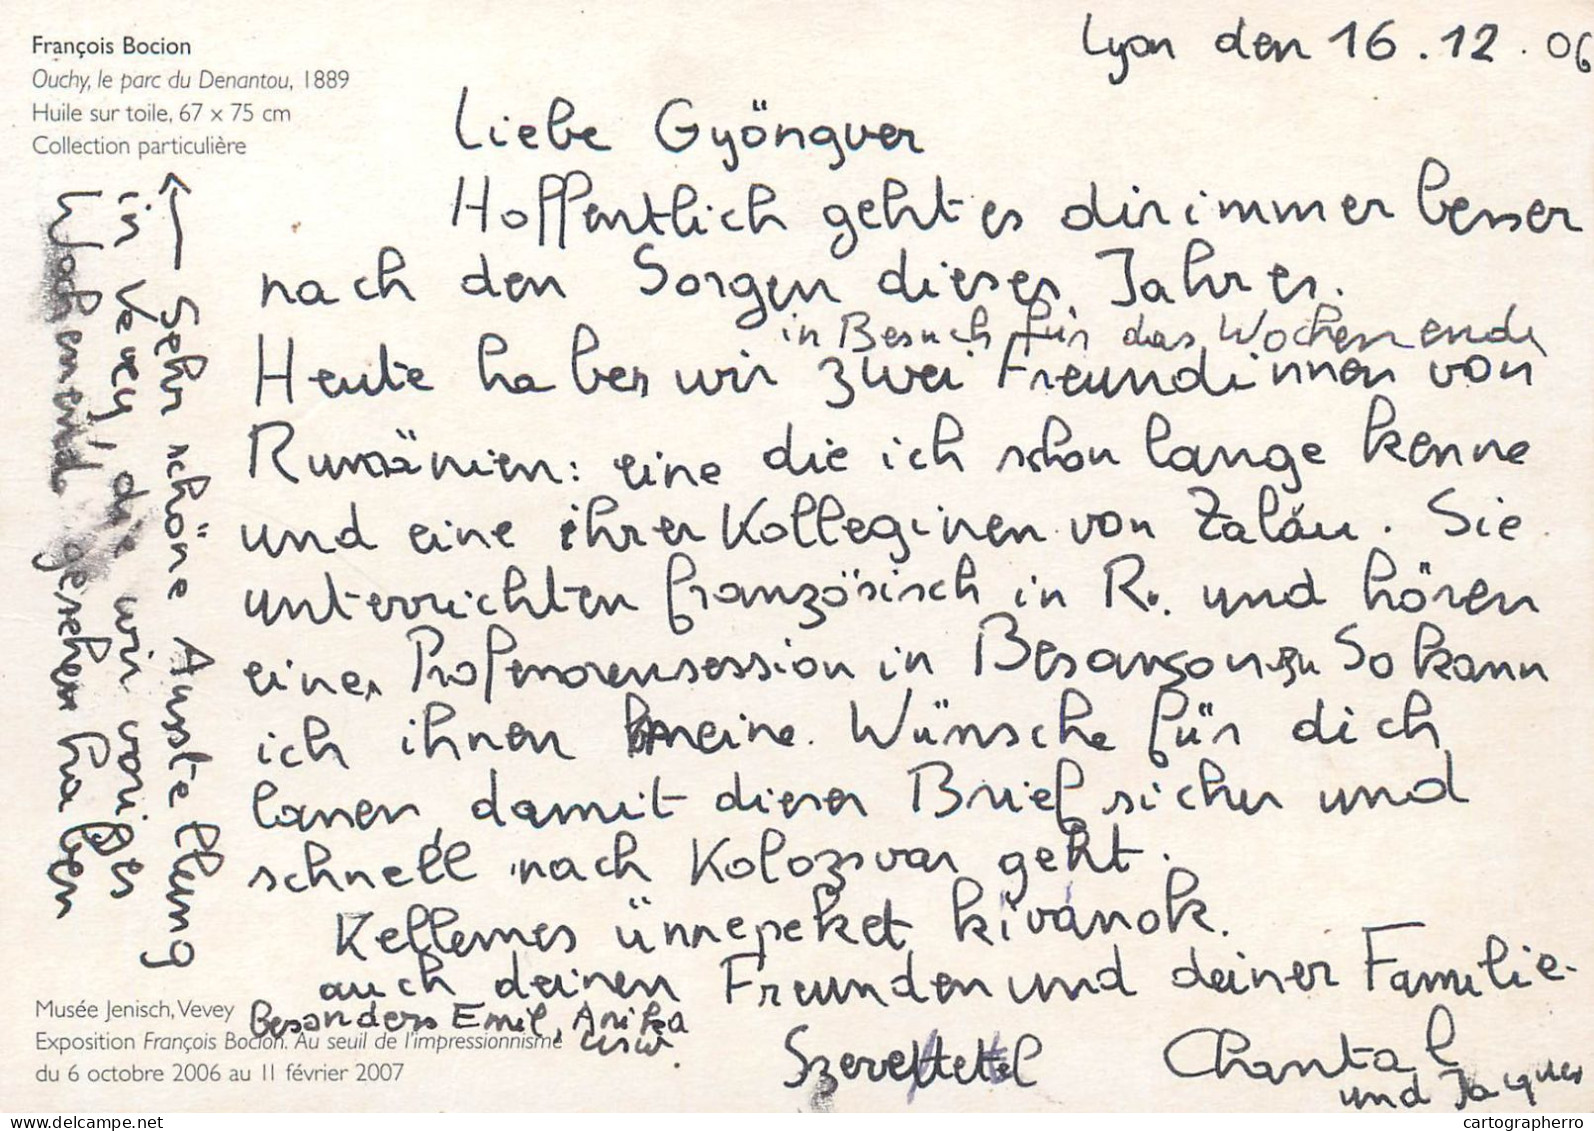 François Bocion
Ouchy, le parc du Denantou, 1889
Huile sur toile, 67 x 75 cm
Collection particulière
Lyon den 16.12.06
Liebe Gyöngver
Hoffentlich geht es dir immer besser
nach den Sorgen dieses Jahres.
in Besuch für das Wochenende
Heute haben wir zwei Freundinnen von
Rumänien: eine die ich schon lange kenne
und eine ihrer Kolleginen von Zaláu. Sie
unterrichten französisch in R. und hören
einer Professorensession in Besançon zu So kann
ich ihnen meine Wünsche für dich
lassen, damit dieser Brief sicher und
schnell nach Kolozsvar geht.
Kellemes ünnepeket kivánok.
auch deinen Freunden und deiner Familie.
Besonders Emil, Anika
usw.
Szeretettel Chantal
und Jacques
← Sehr schöne Ausstellung
in Vevey, die wir voriges
Wochenend gesehen haben
Musée Jenisch, Vevey
Exposition François Bocion. Au seuil de l'impressionnisme
du 6 octobre 2006 au 11 février 2007
cartographerro